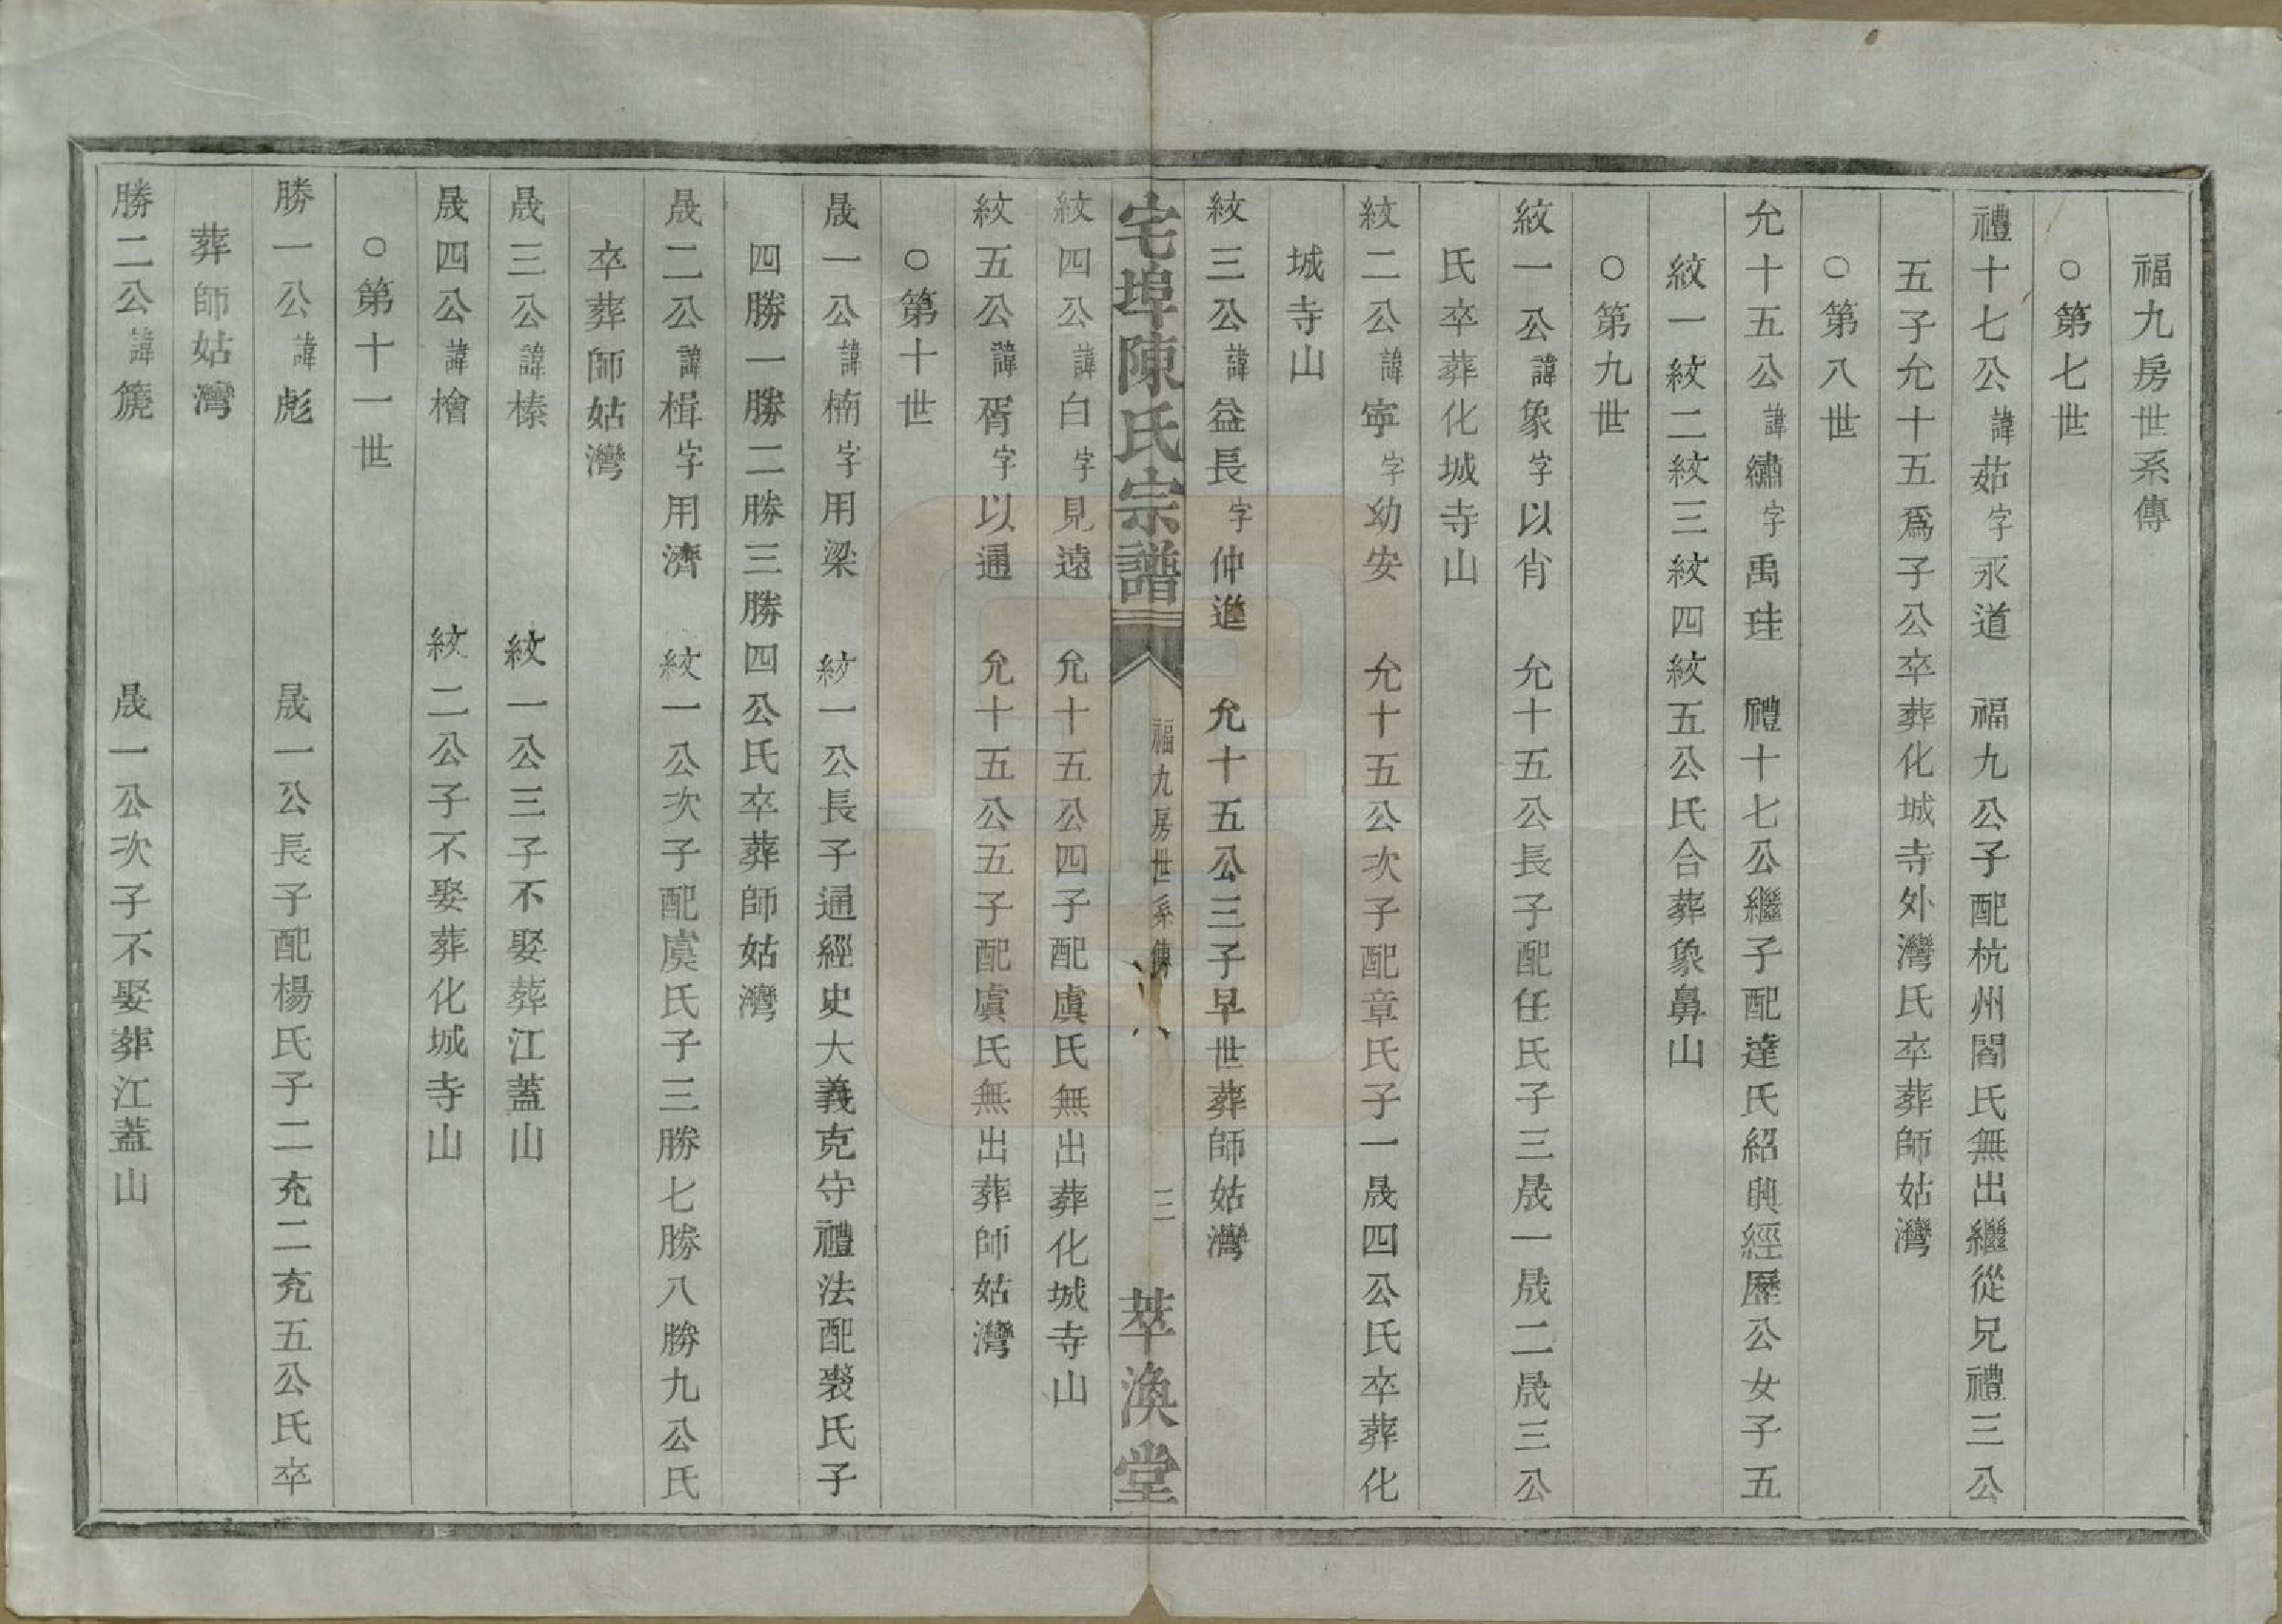 福九房世系傳
○第七世
禮十七公諱茹字永道　福九公子配杭州閻氏無出繼從兄禮三公
五子允十五爲子公卒葬化城寺外灣氏卒葬師姑灣
○第八世
允十五公諱繡字禹珪　禮十七公繼子配達氏紹興經歷公女子五
紋一紋二紋三紋四紋五公氏合葬象鼻山
○第九世
紋一公諱象字以肖　允十五公長子配任氏子三晟一晟二晟三公
氏卒葬化城寺山
紋二公諱寧字幼安　允十五公次子配章氏子一晟四公氏卒葬化
城寺山
紋三公諱益長字仲進　允十五公三子早世葬師姑灣
宅埠陳氏宗譜　福九房世系傳　三　萃渙堂
紋四公諱白字見遠　允十五公四子配虞氏無出葬化城寺山
紋五公諱胥字以通　允十五公五子配虞氏無出葬師姑灣
○第十世
晟一公諱楠字用梁　紋一公長子通經史大義克守禮法配裘氏子
四勝一勝二勝三勝四公氏卒葬師姑灣
晟二公諱楫字用濟　紋一公次子配虞氏子三勝七勝八勝九公氏
卒葬師姑灣
晟三公諱榛　紋一公三子不娶葬江蓋山
晟四公諱檜　紋二公子不娶葬化城寺山
○第十一世
勝一公諱彪　晟一公長子配楊氏子二充二充五公氏卒
葬師姑灣
勝二公諱　晟一公次子不娶葬江蓋山